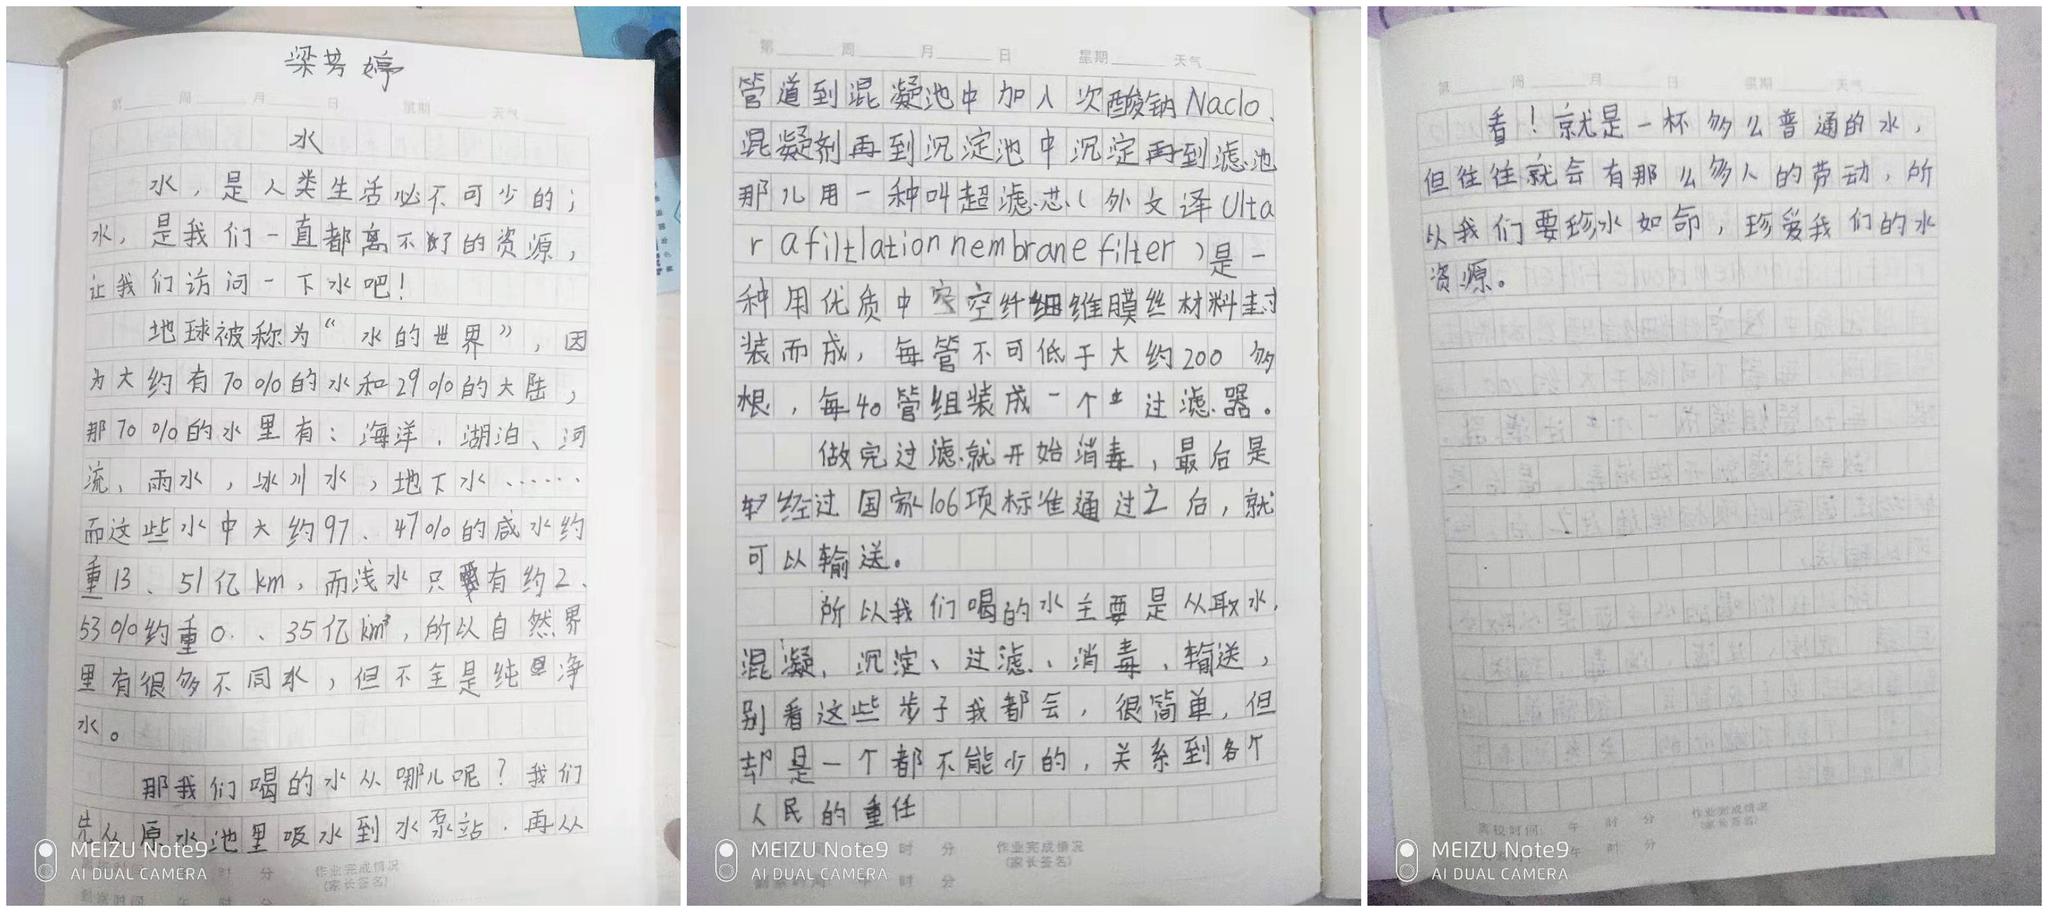 梁芳婷
第 周 月 日 星期 天气
水
水，是人类生活必不可少的；
水，是我们一直都离不好的资源，
让我们访问一下水吧！
地球被称为“水的世界”，因
为大约有70%的水和29%的大陆，
那70%的水里有：海洋、湖泊、河
流、雨水，冰川水，地下水……
而这些水中大约97、47%的咸水约
重13、51亿km，而浅水只有约2、
53%约重0、35亿km³，所以自然界
里有很多不同水，但不全是纯净
水。
那我们喝的水从哪儿呢？我们
先从原水池里吸水到水泵站，再从
MEIZU Note9
AI DUAL CAMERA
时 分 作业完成情况
(家长签名)
第 周 月 日 星期 天气
管道到混凝池中加入次酸钠Naclo、
混凝剂再到沉淀池中沉淀再到滤池
那儿用一种叫超滤芯（外文译Ulta
r afiltlation nembrane filter）是一
种用优质中空纤细维膜丝材料封
装而成，每管不可低于大约200多
根，每40管组装成一个过滤器。
做完过滤就开始消毒，最后是
经过国家106项标准通过之后，就
可以输送。
所以我们喝的水主要是从取水、
混凝、沉淀、过滤、消毒、输送，
别看这些步子我都会，很简单，但
却是一个都不能少的，关系到各个
人民的重任
MEIZU Note9
AI DUAL CAMERA
时 分 作业完成情况
(家长签名)
午 时 分
第 周 月 日 星期 天气
看！就是一杯多么普通的水，
但往往就会有那么多人的劳动，所
以我们要珍水如命，珍爱我们的水
资源。
离校时间： 午 时 分 作业完成情况
(家长签名)
午 时 分
MEIZU Note9
AI DUAL CAMERA